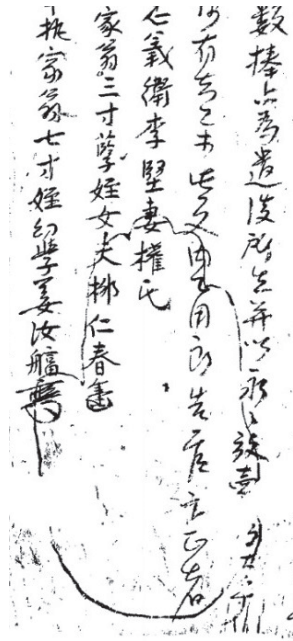 数捧上為遣後所生并以永永放賣
有去乙等此文內用良告官卞正者
義衛李堅妻權氏
家翁三寸孽姪女夫柳仁春
執家翁七寸姪幼學姜汝